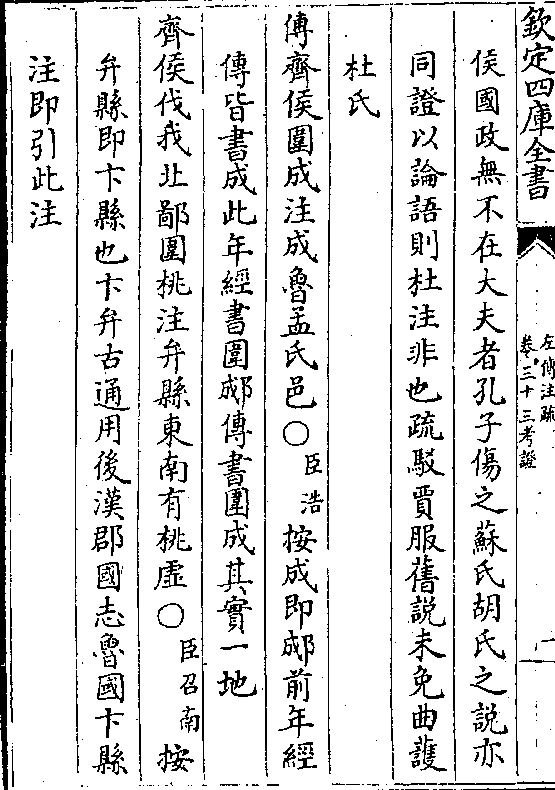 欽定四庫全書
左傳注疏
卷三十三考證
一
侯國政無不在大夫者孔子傷之蘇氏胡氏之說亦
同證以論語則杜注非也疏駁賈服舊説未免曲護
杜氏
傳齊侯圍成注成魯孟氏邑○臣浩按成即郕前年經
傳皆書成此年經書圍郕傳書圍成其實一地
齊侯伐我北鄙圍桃注弁縣東南有桃虛○臣召南按
弁縣即卞縣也卞弁古通用後漢郡國志魯國卞縣
注即引此注